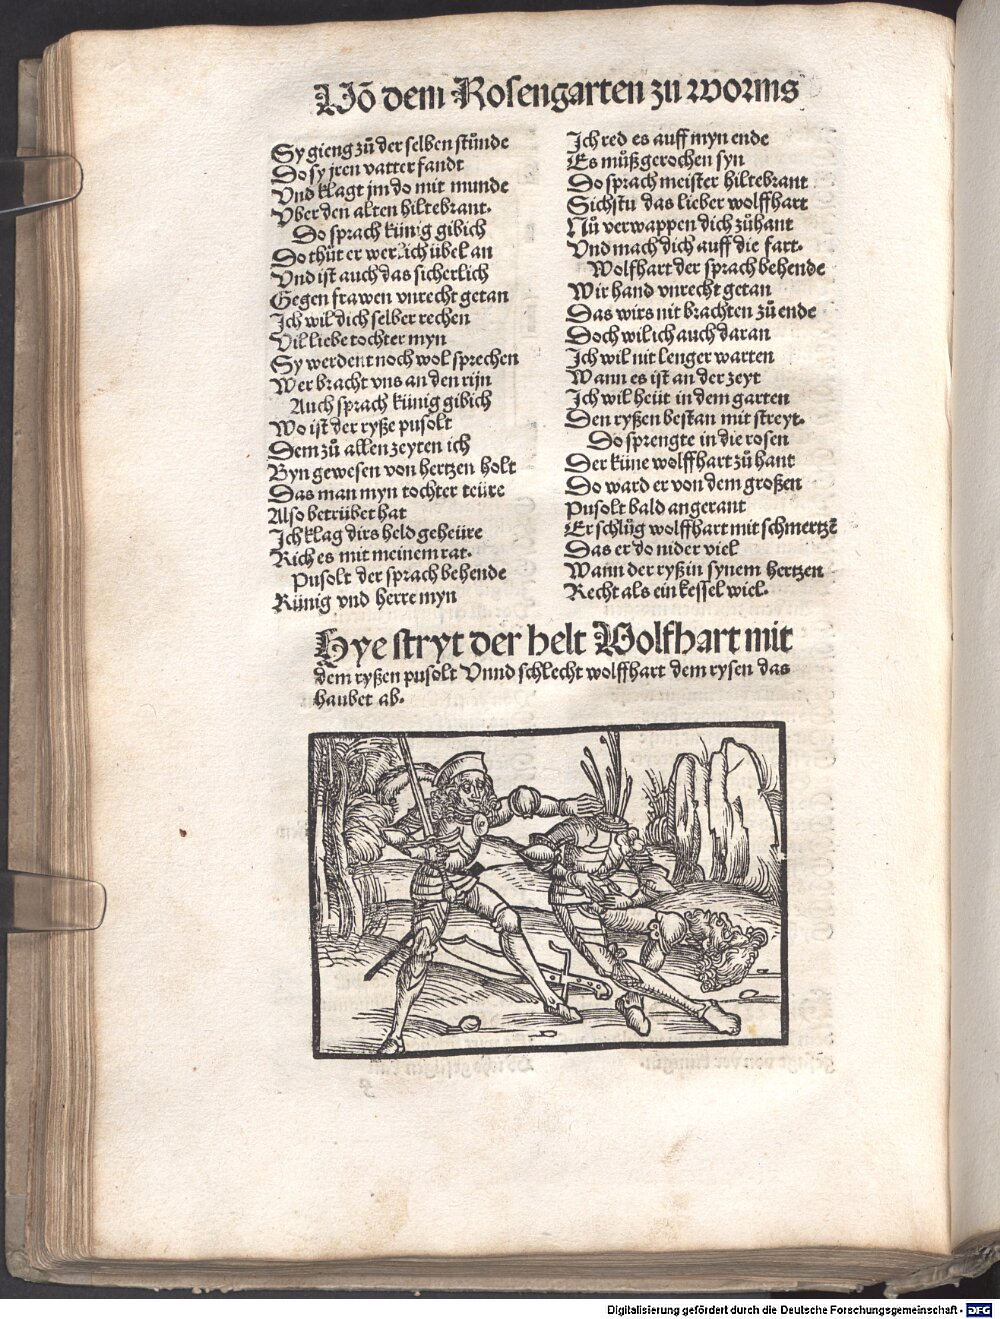 Vō dem Rosengarten zu worms
Sy gieng zů der selben stůnde
Do sy jren vatter fandt
Vnd klagt jm do mit munde
Vber den alten hiltebrant.
Do sprach künig gibich
So thůt er werlich übel an
Vnd ist auch das sicherlich
Gegen frawen vnrecht getan
Ich wil dich selber rechen
Vil liebe tochter myn
Sy werdent noch wol sprechen
Wer bracht vns an den rijn
Auch sprach künig gibich
Wo ist der ryße pusolt
Dem zů allen zeyten ich
Byn gewesen von hertzen holt
Das man myn tochter teüre
Also betrübet hat
Ich klag dirs held geheüre
Rich es mit meinem rat.
Pusolt der sprach behende
Künig vnd herre myn
Ich red es auff myn ende
Es můß gerochen syn
Do sprach meister hiltebrant
Sichstu das lieber wolffhart
Nů verwappen dich zůhant
Vnd mach dich auff die fart.
Wolfhart der sprach behende
Wir hand vnrecht getan
Das wirs nit brachten zů ende
Doch wil ich auch daran
Ich wil nit lenger warten
Wann es ist an der zeyt
Ich wil heüt in dem garten
Den ryßen bestan mit streyt.
Do sprengte in die rosen
Der küne wolffhart zů hant
Do ward er von dem großen
Pusolt bald angerant
Er schlůg wolffhart mit schmertzē
Das er do nider viel
Wann der ryß in synem hertzen
Recht als ein kessel wiel.
Hye stryt der helt Wolfhart mit
dem ryßen pusolt Vnnd schlecht wolffhart dem rysen das
haubet ab.
Digitalisierung gefördert durch die Deutsche Forschungsgemeinschaft - DFG